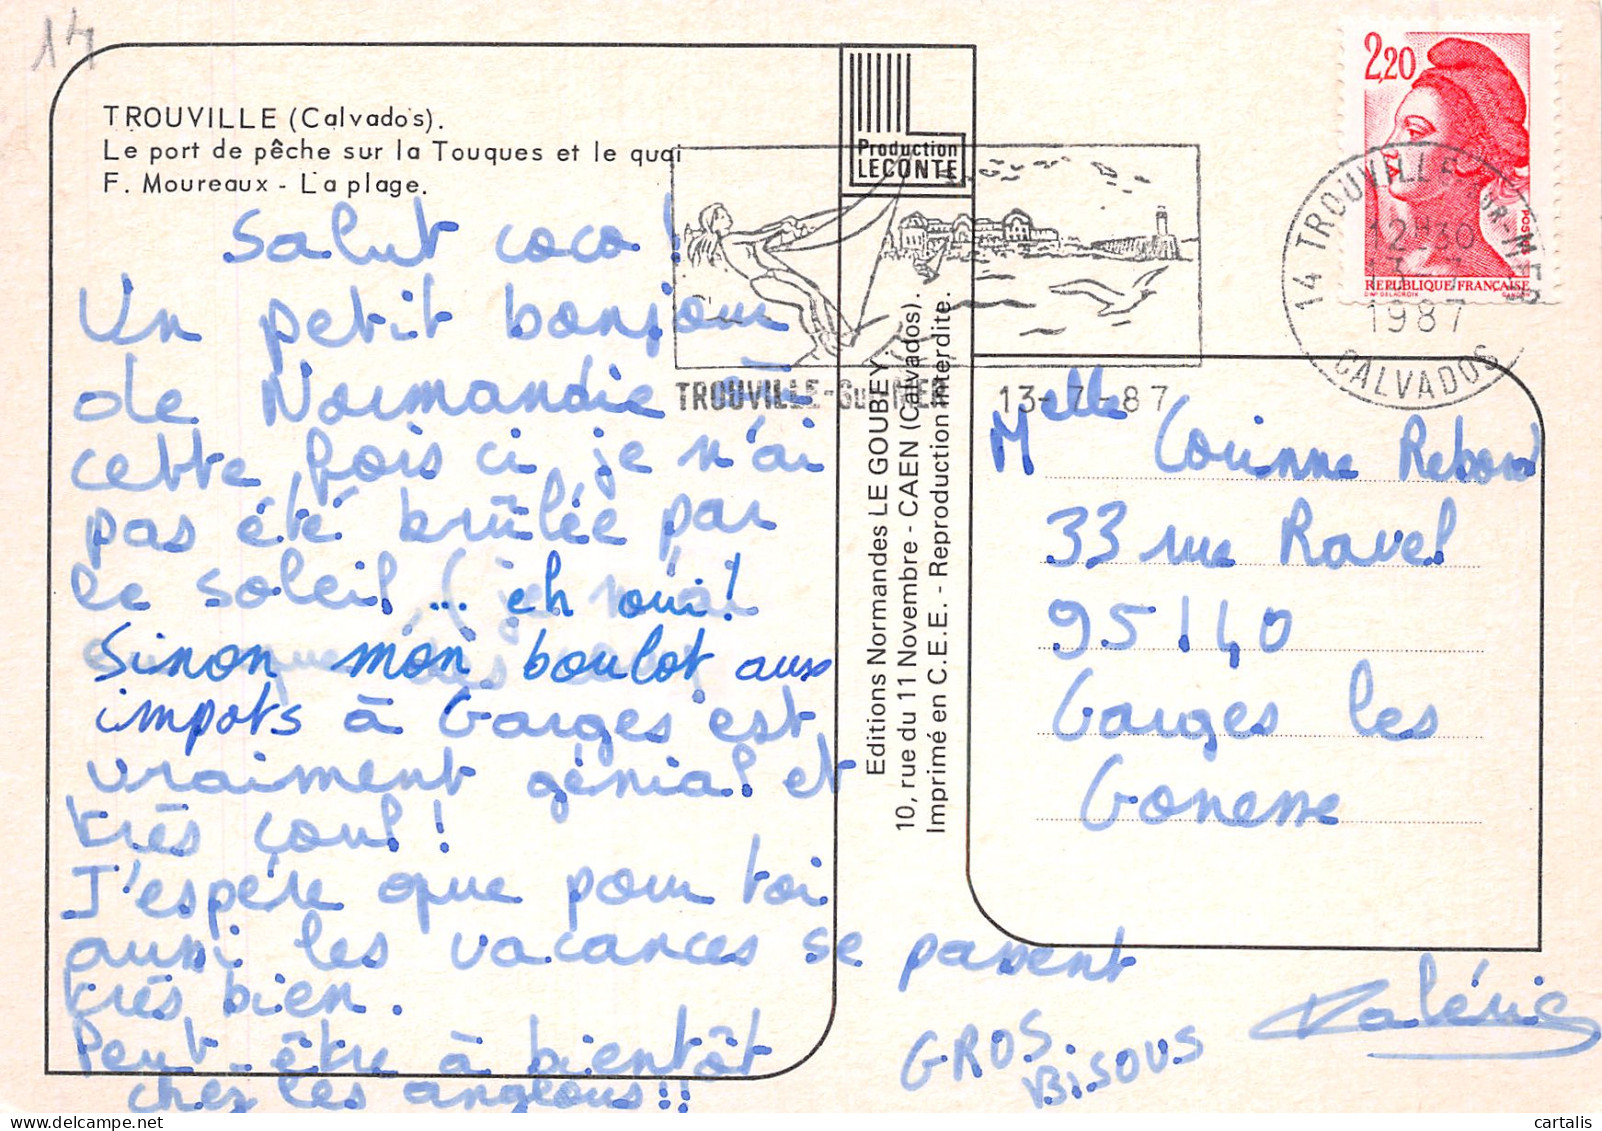 14
TROUVILLE (Calvados).
Le port de pêche sur la Touques et le quai
F. Moureaux - La plage.
Salut coco !
Un petit bonjour
de Normandie à
cette fois ci je n'ai
pas été brûlée par
le soleil, ... eh oui!
Sinon mon boulot aux
impots à Garges est
vraiment génial et
très çoul !
J'espère que pour toi
aussi les vacances se passent
très bien.
Peut-être à bientôt
chez les anglous !!
GROS
BISOUS
Valérie
Production
LECONTE
TROUVILLE-sur-MER
13-7-87
Editions Normandes LE GOUBEY
10, rue du 11 Novembre - CAEN (Calvados).
Imprimé en C.E.E. - Reproduction interdite.
2,20
POSTES
REPUBLIQUE FRANÇAISE
D'AP. DELACROIX GANDON
14 TROUVILLE-SUR-MER
12H30
13-7
1987
CALVADOS
Melle Corinne Rebord
33 rue Ravel
95140
Garges les
Gonesse
cartalis